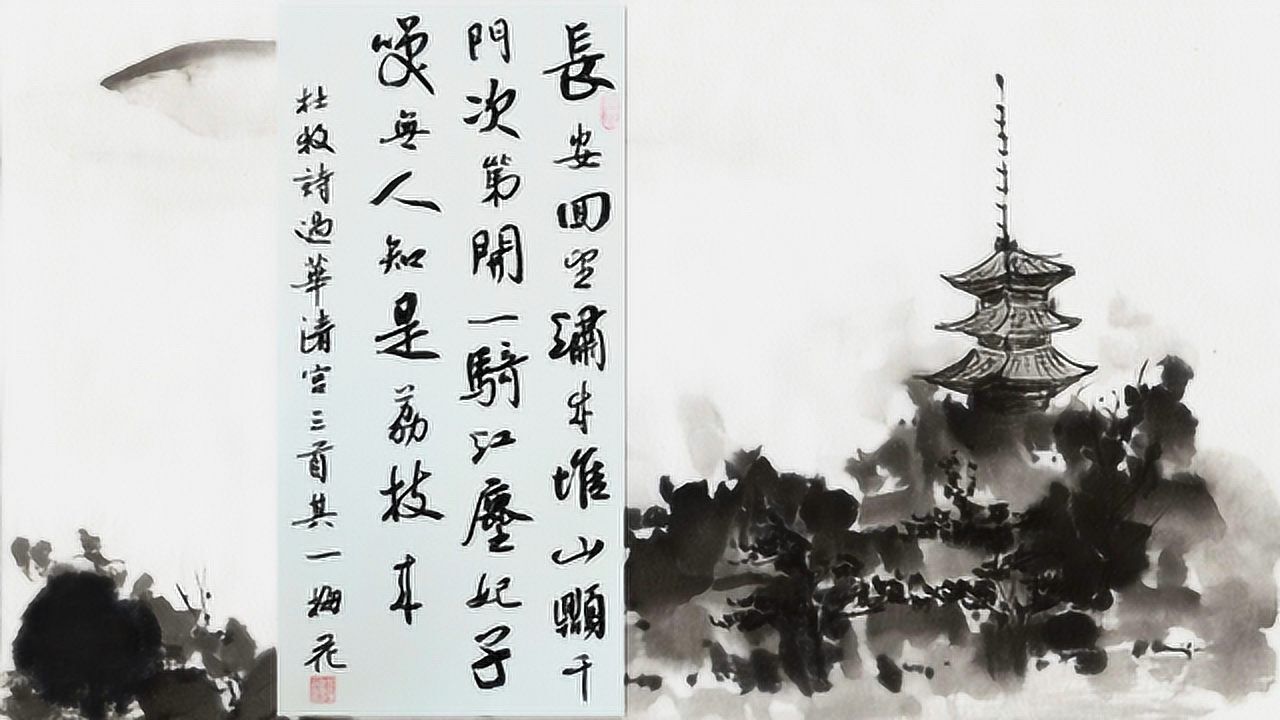 長安回望繡成堆山頂千
門次第開一騎紅塵妃子
笑無人知是荔枝來
杜牧詩過華清宮三首其一梅花